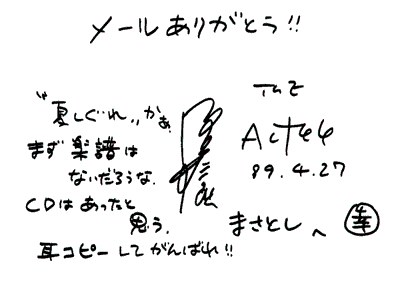 メールありがとう!!
"夏しぐれ"かぁ、
まず楽譜は
ないだろうな.
CDはあったと
思う.
耳コピーしてがんばれ!!
THE
ALFEE
99.4.27
まさとしへ
幸